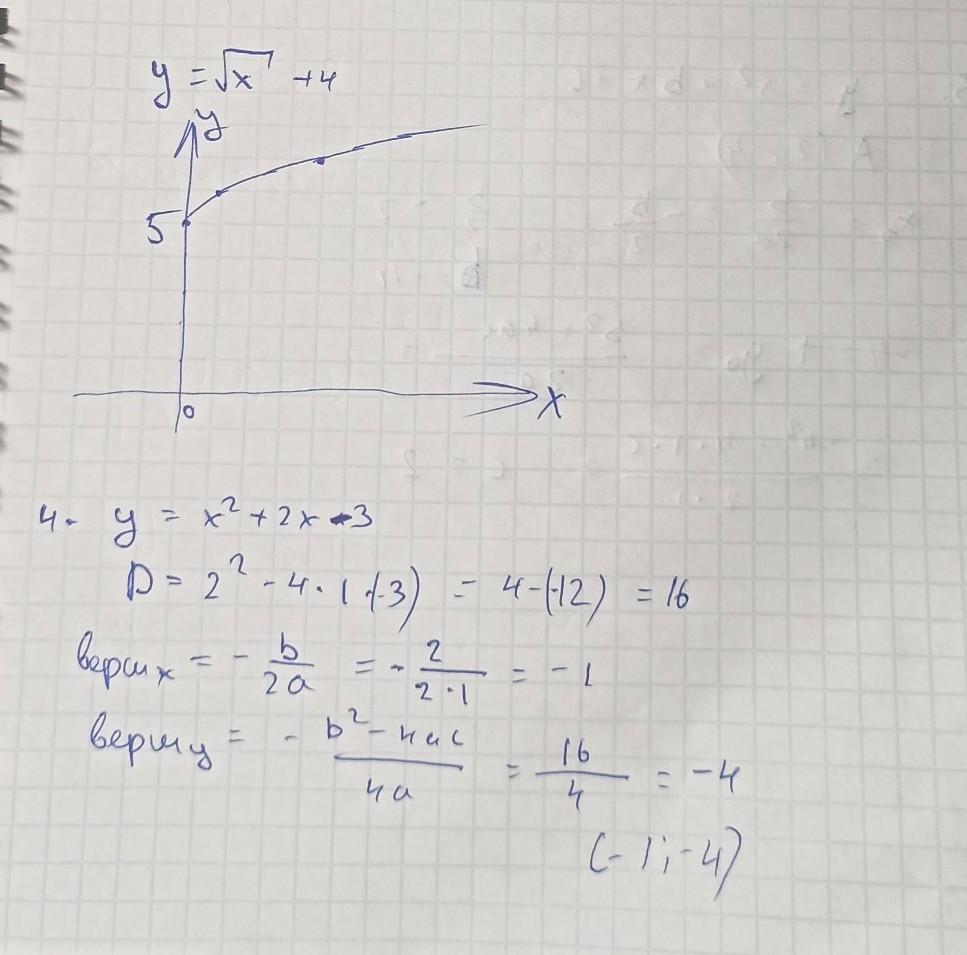 y = √x + 4
y
5
0
x
4. y = x² + 2x - 3
D = 2² - 4 · 1 · (-3) = 4 - (-12) = 16
верш x = - b/2a = - 2/2·1 = -1
верш y = - b² - 4ac/4a = 16/4 = -4
(-1; -4)